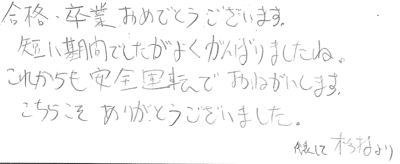 合格・卒業おめでとうございます。
短い期間でしたがよくがんばりましたね。
これからも安全運転でおねがいします。
こちらこそありがとうございました。
より